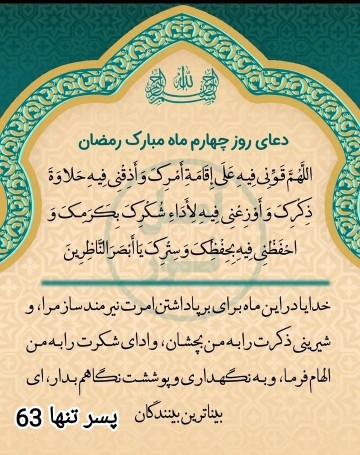 بسم الله الرحمن الرحیم
دعای روز چهارم ماه مبارک رمضان
اللَّهُمَّ قَوِّنِی فِیهِ عَلَى إِقَامَةِ أَمْرِکَ وَ أَذِقْنِی فِیهِ حَلاوَةَ
ذِکْرِکَ وَ أَوْزِعْنِی فِیهِ لِأَدَاءِ شُکْرِکَ بِکَرَمِکَ وَ
احْفَظْنِی فِیهِ بِحِفْظِکَ وَ سِتْرِکَ یَا أَبْصَرَ النَّاظِرِینَ
خدایا در این ماه برای برپا داشتن امرت نیرمند ساز مرا، و
شیرینی ذکرت را به من بچشان، و ادای شکرت را به من
الهام فرما، و به نگهداری و پوششت نگاهم بدار، ای
بیناترین بینندگان
پسر تنها 63